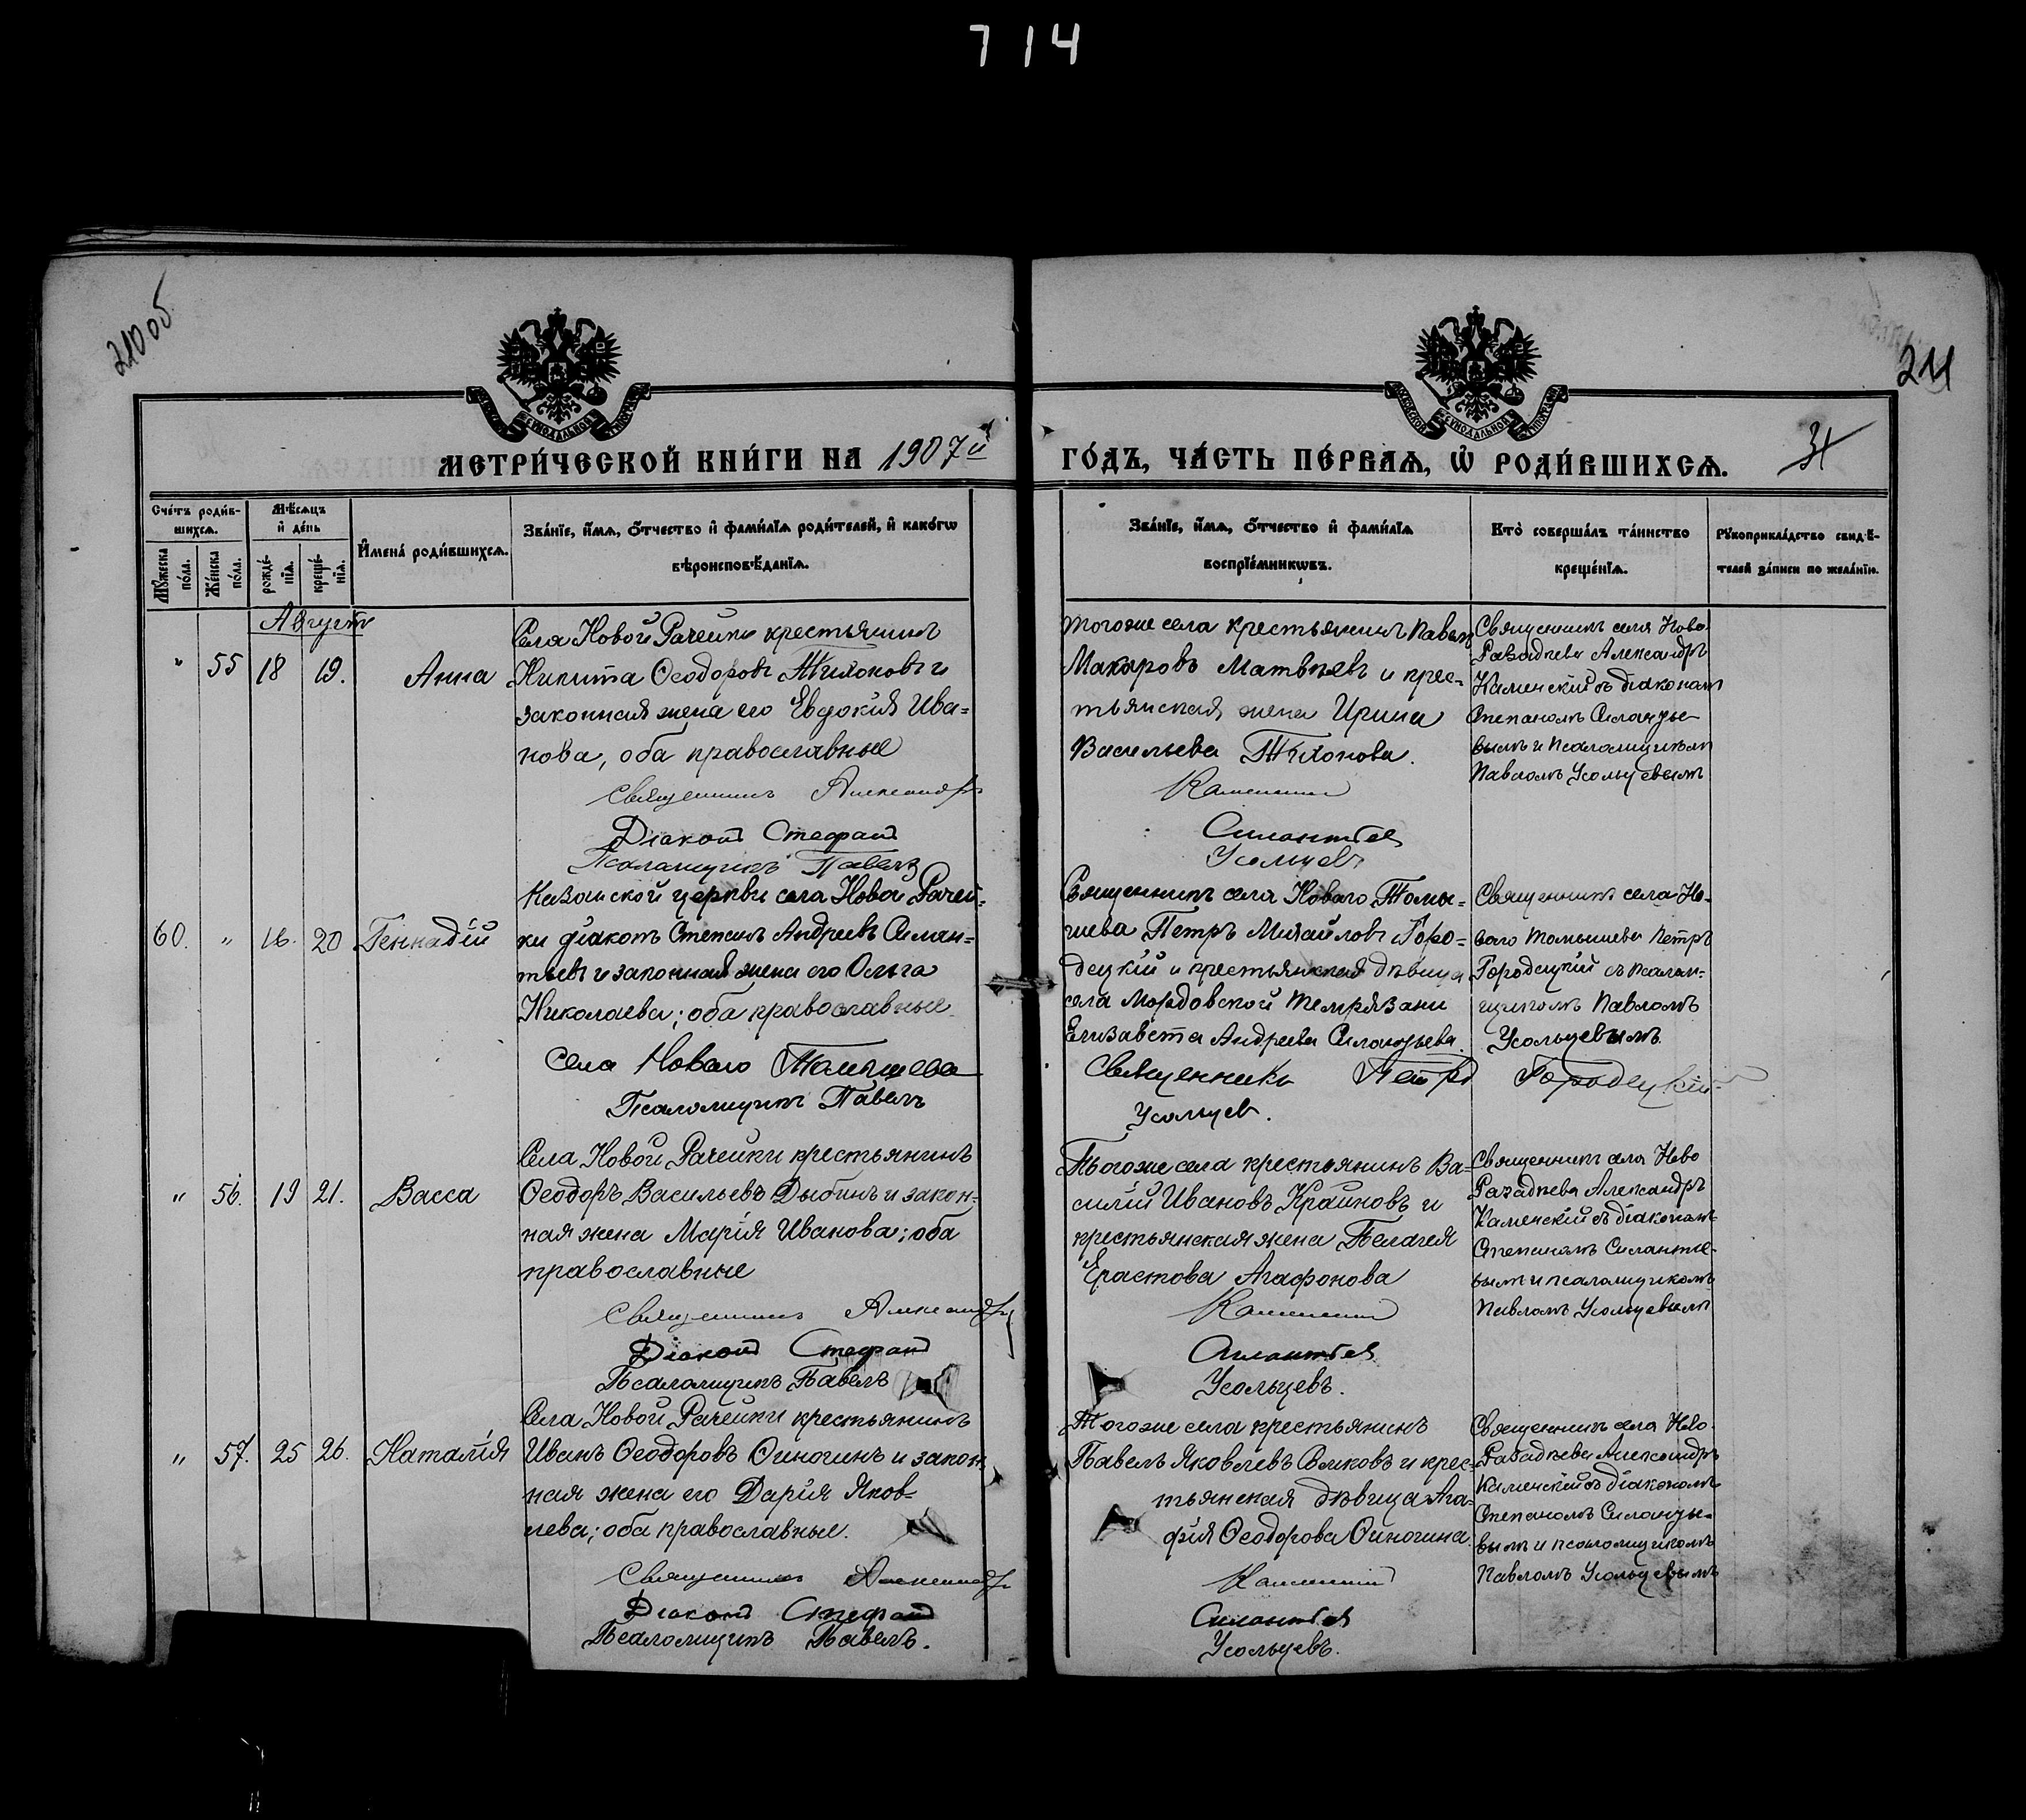 714
210 об
211
МЕТРИ́ЧЕСКОЙ КНИ́ГИ НА 1907й
ГО́ДЪ, ЧА́СТЬ ПЕ́РВАѦ, Ѡ҆ РОДИ́ВШИХСѦ.
31
Сче́тъ роди́в-
шихсѧ.
Мѣ́сѧцъ
и҆ де́нь
Мꙋ́жеска
по́ла.
Же́нска
по́ла.
рожде́-
нїѧ.
креще́-
нїѧ.
И҆мена̀ роди́вшихсѧ.
Зва́нїе, и҆́мѧ, ѻ҆́тчество и҆ фами́лїѧ роди́телей, и҆ како́гѡ
вѣроисповѣ́данїѧ.
Зва́нїе, и҆́мѧ, ѻ҆́тчество и҆ фами́лїѧ
воспрїе́мникѡвъ.
Кто̀ соверша́лъ та́инство
креще́нїѧ.
Рꙋкоприкла́дство свидѣ́-
телей за́писи по жела́нїю.
Августъ
" 55 18 19. Анна
Села Новой Рачейки крестьянинъ
Никита Ѳеодоровъ Тихоновъ и
законная жена его Евдокія Ива=
нова, оба православные
Священникъ Александръ
Діаконъ Стефанъ
Псаломщикъ Павелъ
Тогоже села крестьянинъ Павелъ
Макаровъ Матвѣевъ и крес-
тьянская жена Ирина
Васильева Тихонова.
Каменскій
Силантьев
Усольцевъ
Священникъ села Ново-
Александръ
Каменскій съ діакономъ
Степаномъ Силантье-
вымъ и псаломщикомъ
Павломъ Усольцевымъ
60. " 16. 20 Геннадій
Казанской церкви села Новой Рачей-
ки діаконъ Степанъ Андреевъ Силан=
тьевъ и законная жена его Ольга
Николаева; оба православные
Села Новаго Томышева
Псаломщикъ Павелъ
Священникъ села Новаго Томы=
шева Петръ Михайловъ Горо=
децкій и крестьянская дѣвица
села Мордовской Темрязани
Елизавета Андреева Силантьева.
Священникъ Петръ Городецкій
Усольцев.
Священникъ села Но-
ваго Томышева Петръ
Городецкій съ псалом-
щикомъ Павломъ
Усольцевымъ.
" 56. 19 21. Васса
Села Новой Рачейки крестьянинъ
Ѳеодоръ Васильевъ Дыбинъ и закон-
ная жена Марія Иванова; оба
православные
Священникъ Александръ
Діаконъ Стефанъ
Псаломщикъ Павелъ
Тогоже села крестьянинъ Ва-
силій Ивановъ Краиновъ и
крестьянская жена Пелагея
Ерастова Агафонова
Каменскій
Силантьев
Усольцевъ.
Священникъ села Ново
Александръ
Каменскій съ діакономъ
Степаномъ Силантье-
вымъ и псаломщикомъ
Павломъ Усольцевымъ
" 57. 25 26. Наталія
Села Новой Рачейки крестьянинъ
Иванъ Ѳеодоровъ Финогинъ и закон
ная жена его Дарія Яков-
лева; оба православные.
Священникъ Александръ
Діаконъ Стефанъ
Псаломщикъ Павелъ.
Тогоже села крестьянинъ
Павелъ Яковлевъ и крес-
тьянская дѣвица Ага-
фія Ѳеодорова Финогина
Каменскій
Силантьев
Усольцевъ.
Священникъ села Ново-
Александръ
Каменскій съ діакономъ
Степаномъ Силантье-
вымъ и псаломщикомъ
Павломъ Усольцевымъ